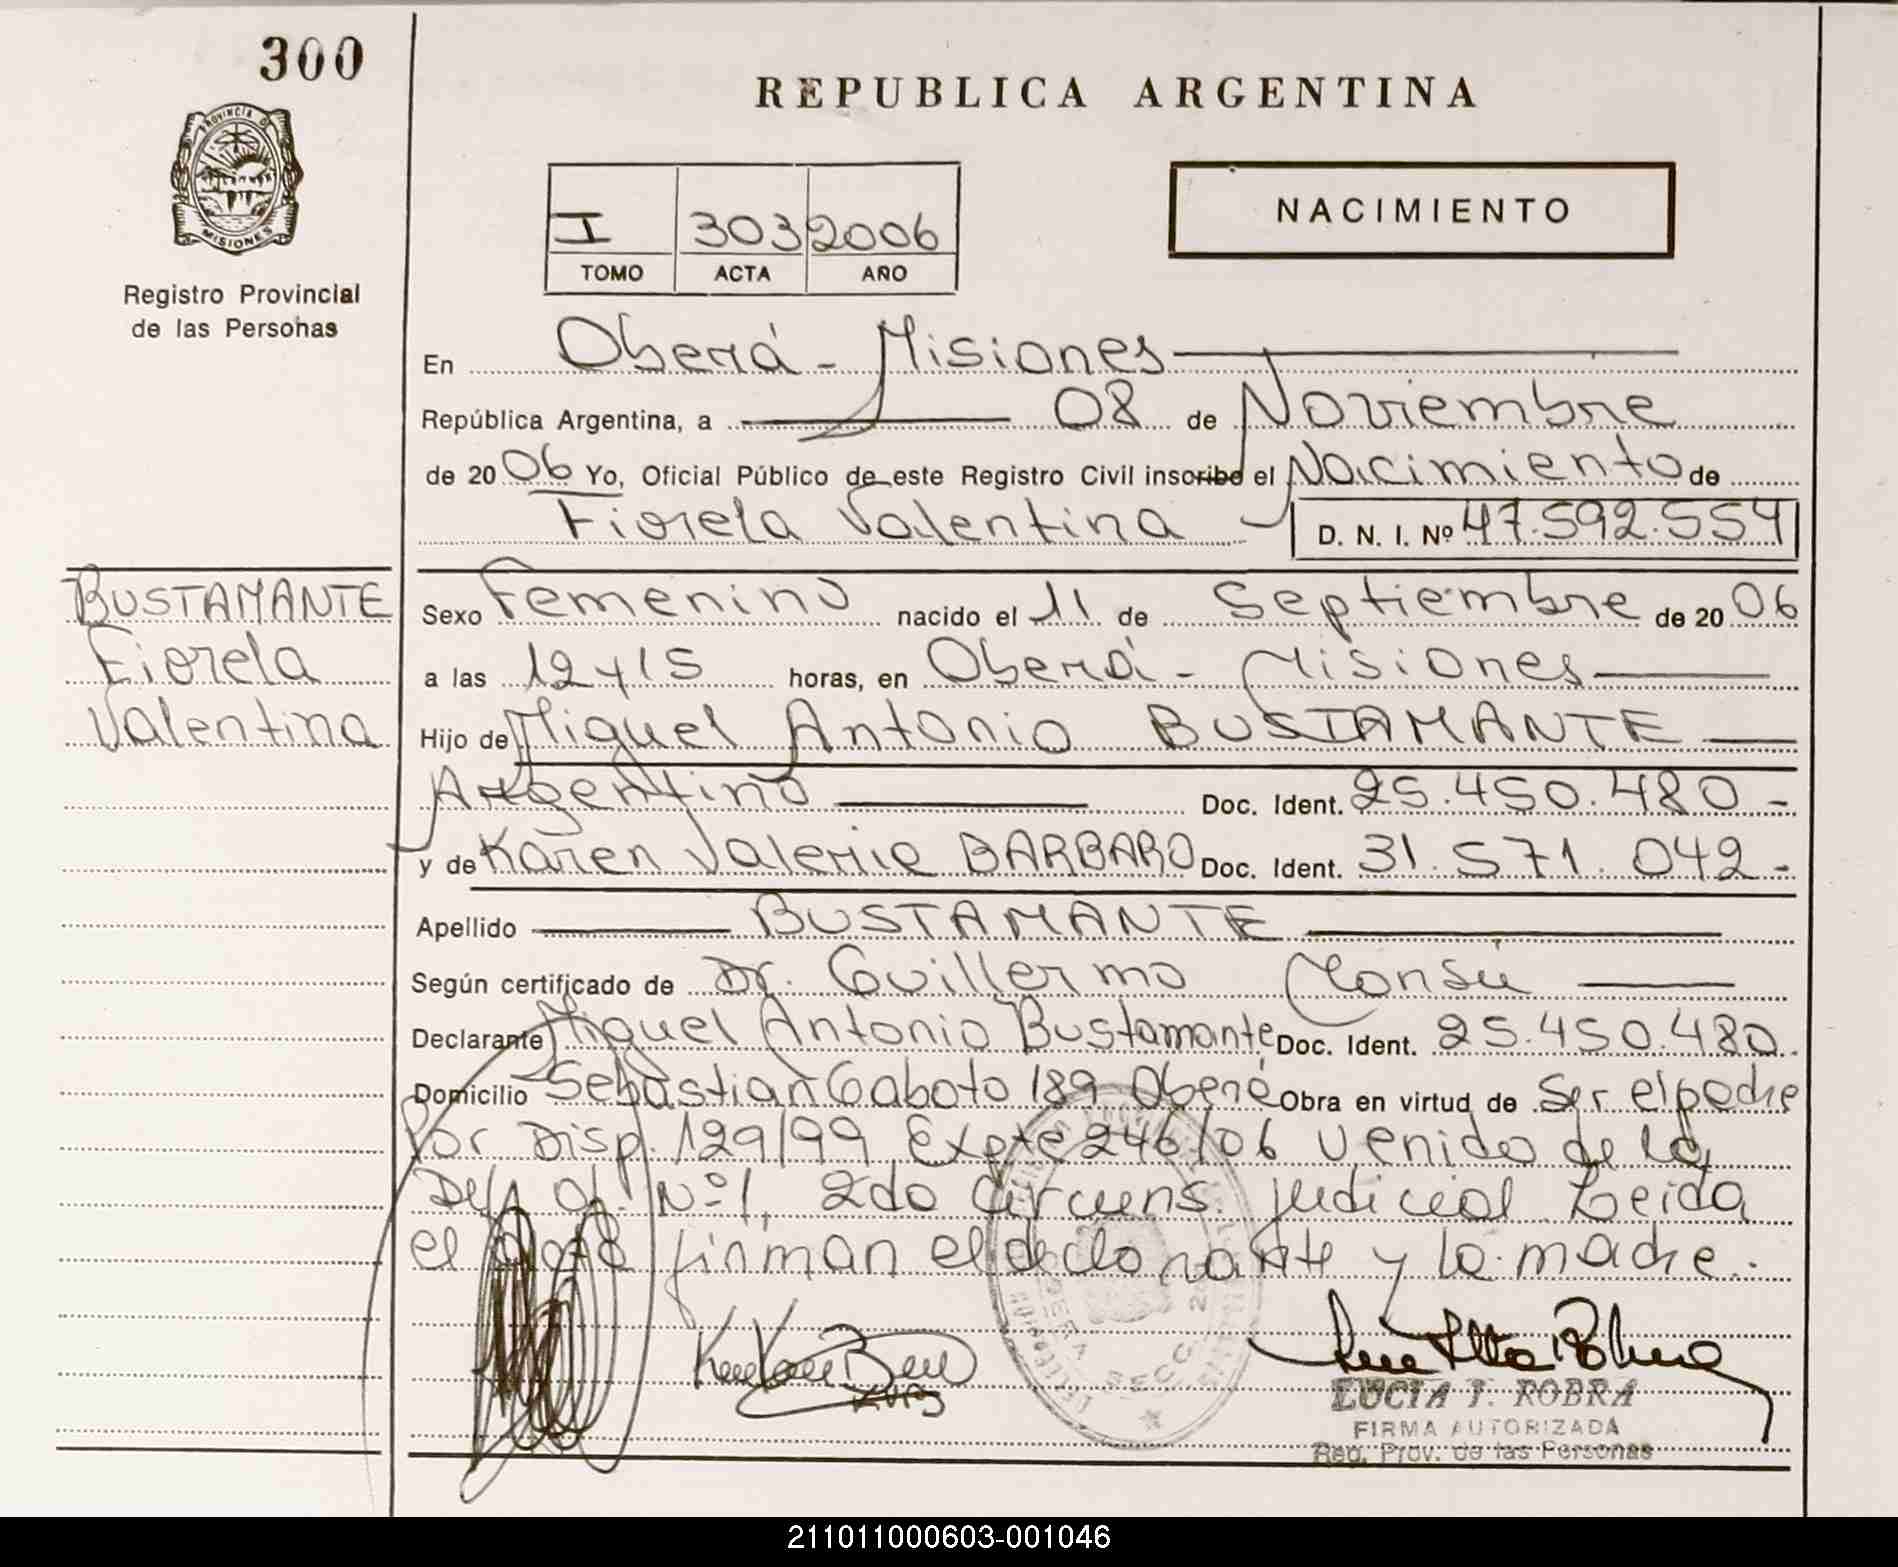 300
REPUBLICA ARGENTINA
PROVINCIA DE
MISIONES
Registro Provincial
de las Personas
NACIMIENTO
I 303 2006
TOMO ACTA AÑO
En Oberá - Misiones
República Argentina, a 08 de Noviembre
de 2006 Yo, Oficial Público de este Registro Civil inscribo el Nacimiento de
Fiorela Valentina D. N. I. Nº 47.592.554
BUSTAMANTE
Fiorela
Valentina
Sexo Femenino nacido el 11 de Septiembre de 2006
a las 12 y 15 horas, en Oberá - Misiones
Hijo de Miguel Antonio BUSTAMANTE
Argentino Doc. Ident. 25.450.480-
y de Karen Valeria BARBARO Doc. Ident. 31.571.042-
Apellido BUSTAMANTE
Según certificado de Dr. Guillermo
Declarante Miguel Antonio Bustamante Doc. Ident. 25.450.480.
Domicilio Sebastian Gaboto 189 Oberá Obra en virtud de Ser el padre
Por Disp. 129/99 Expte 246/06 venido de la
Def. Of. Nº 1, 2da Circuns. judicial Leida
el acta firman el declarante y la madre.
LUCIA I. ROBRA
FIRMA AUTORIZADA
Reg. Prov. de las Personas
211011000603-001046